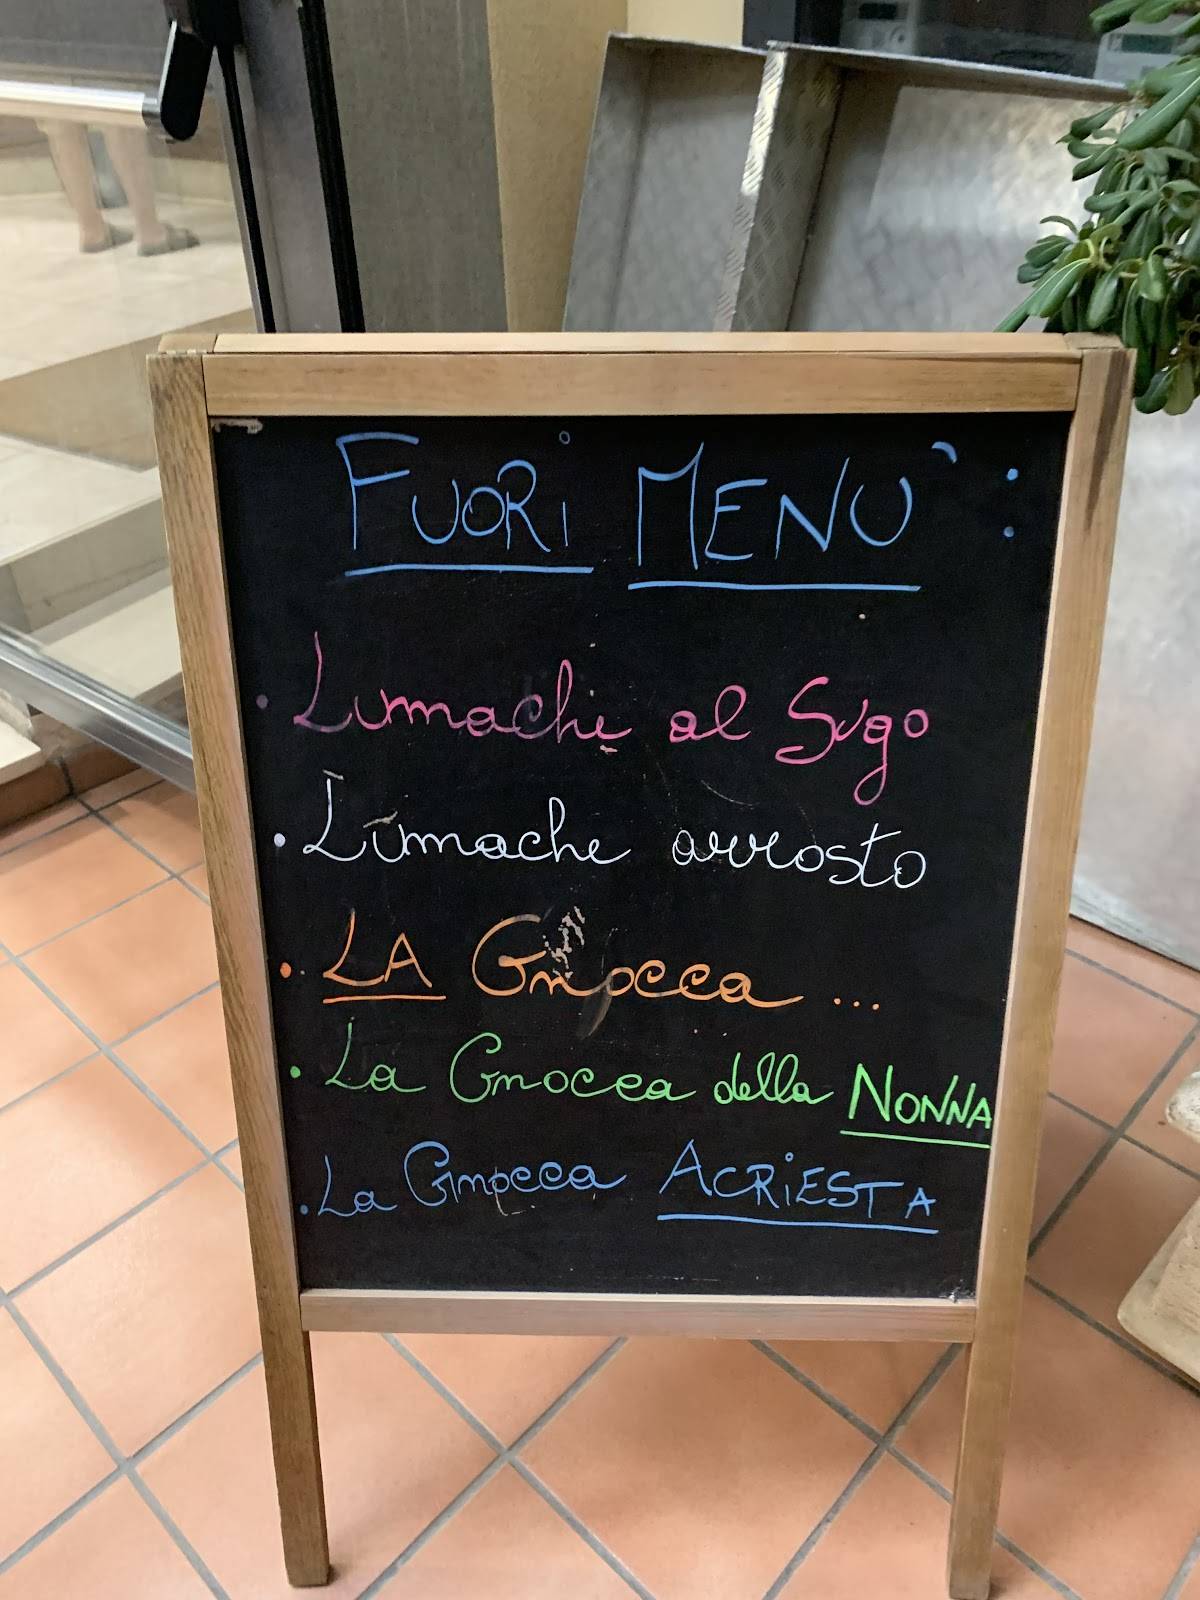 FUORi MENU` :
• Lumache al Sugo
• Lumache arrosto
• LA Gnocca ...
• La Gnocca della NONNA
• La Gnocca ACRiESTA